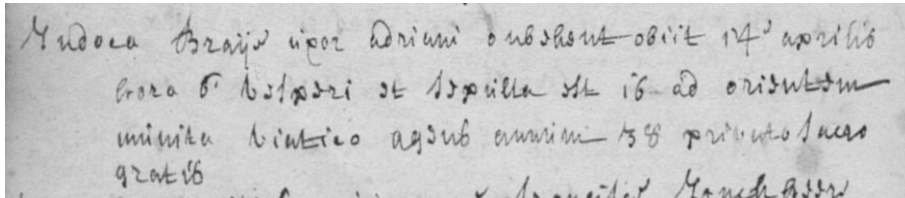 Judoca Braije uxor adriani onbekent obiit 14ᵃ aprilis
hora 6ᵃ vesperi et sepulta est 16 ad orientem
munita viatico agens annum 38 privato sacro
gratis
francisca